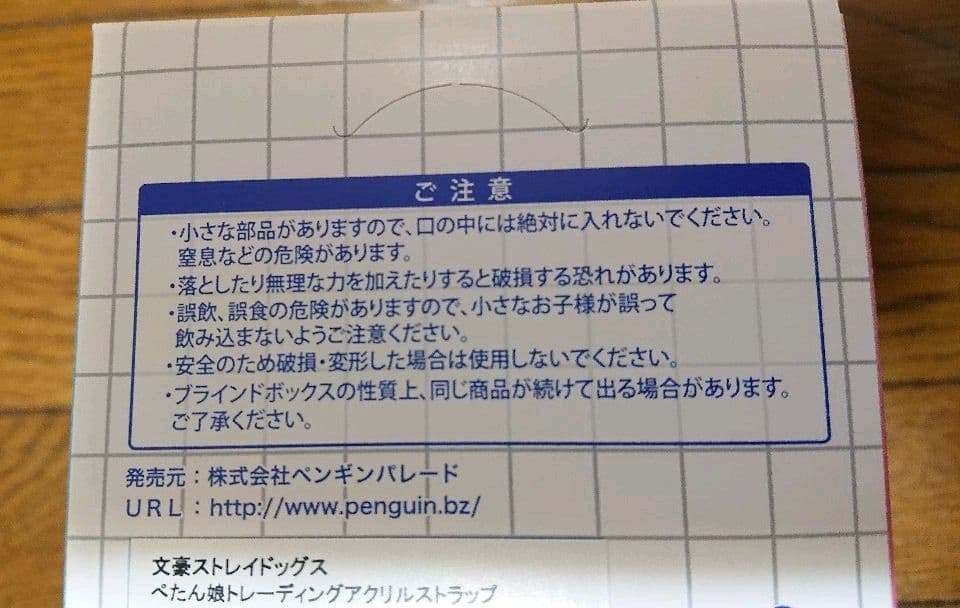 ご注意
・小さな部品がありますので、口の中には絶対に入れないでください。
窒息などの危険があります。
・落としたり無理な力を加えたりすると破損する恐れがあります。
・誤飲、誤食の危険がありますので、小さなお子様が誤って
飲み込まないようご注意ください。
・安全のため破損・変形した場合は使用しないでください。
・ブラインドボックスの性質上、同じ商品が続けて出る場合があります。
ご了承ください。
発売元：株式会社ペンギンパレード
URL：http://www.penguin.bz/
文豪ストレイドッグス
ぺたん娘トレーディングアクリルストラップ